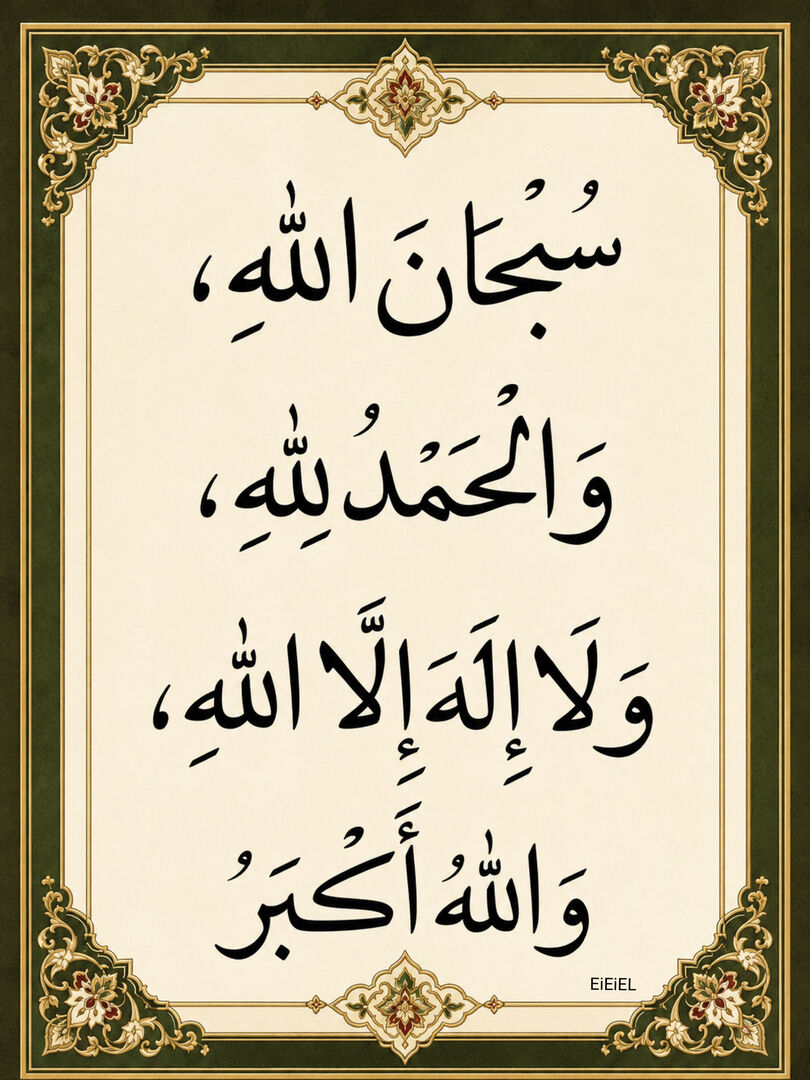 سُبْحَانَ اللهِ،
وَالْحَمْدُ لِلهِ،
وَلَا إِلَهَ إِلَّا اللهِ،
وَاللهُ أَكْبَرُ
EiEiEL